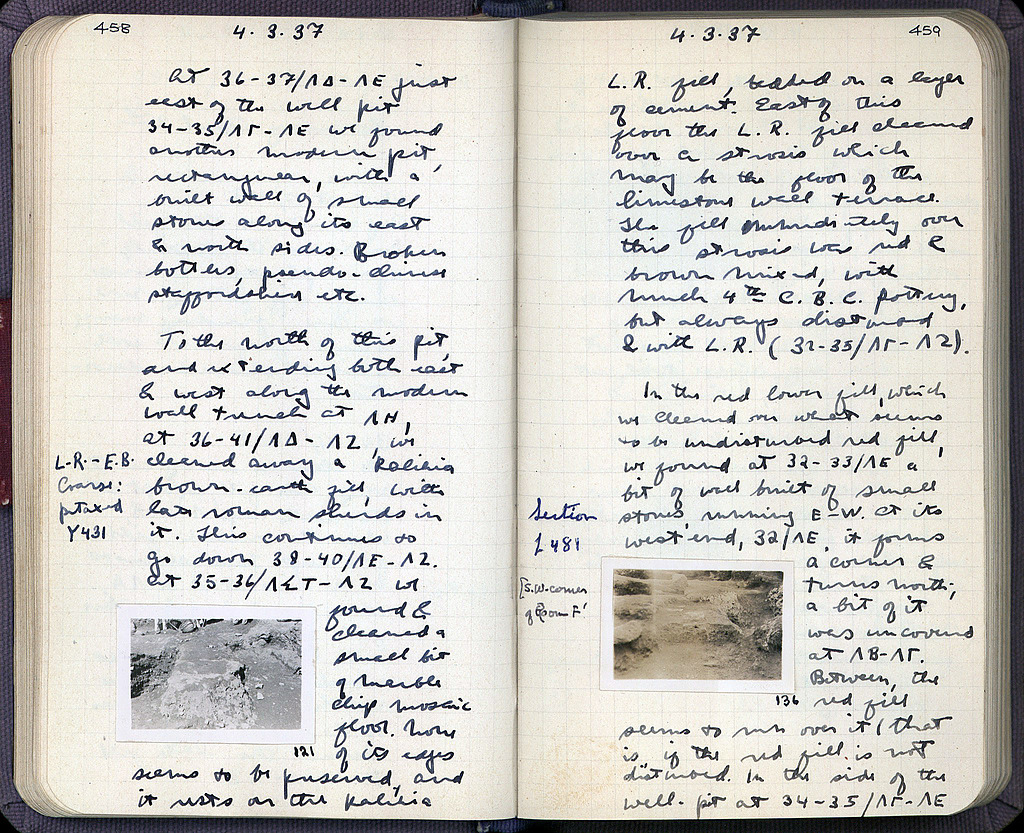 458
4.3.37
At 36-37/ΛΔ-ΛΕ just
east of the well pit
34-35/ΛΓ-ΛΕ we found
another modern pit,
rectangular, with a
built wall of small
stones along its east
& north sides. Broken
bottles, pseudo-chinese
staffordshire etc.
To the north of this pit,
and extending both east
& west along the modern
wall trench at ΛΗ,
at 36-41/ΛΔ-ΛΖ, we
cleared away a kalikia
brown-earth fill, with
late roman sherds in
it. This continues to
go down 38-40/ΛΕ-ΛΖ.
at 35-36/ΛΣΤ-ΛΖ we
found &
cleaned a
small bit
of marble
chip mosaic
floor. None
of its edges
seems to be preserved, and
it rests on the kalikia
L.R.-E.B.
Coarse:
Y431
121
459
4.3.37
L.R. fill, bedded on a layer
of cement. East of this
floor the L.R. fill cleaned
over a strosis which
may be the floor of the
limestone wall terrace.
The fill immediately over
this strosis was red &
brown mixed, with
much 4th C. B.C. pottery,
but always disturbed
& with L.R. (32-35/ΛΓ-ΛΖ).
In the red lower fill, which
we cleaned over what seems
to be undisturbed red fill,
we found at 32-33/ΛΕ a
bit of wall built of small
stones, running E-W. At its
west end, 32/ΛΕ, it forms
a corner &
turns north;
a bit of it
was uncovered
at ΛΒ-ΛΓ.
Between, the
red fill
seems to run over it (that
is, if the red fill is not
disturbed. In the side of the
well-pit at 34-35/ΛΓ-ΛΕ
Section
L 481
[S.W. corner
of Room F'
136